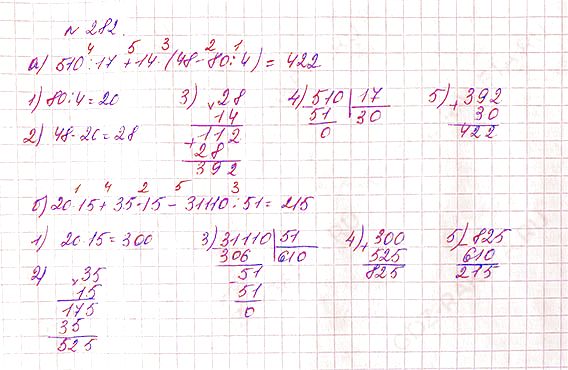 № 282.
4 5 3 2 1
а) 510:17 + 14·(48-80:4) = 422
1) 80:4=20
2) 48-20=28
3) × 28
14
112
+
28
392
4) 510 | 17
51 30
0
5) + 392
30
422
1 4 2 5 3
б) 20·15 + 35·15 - 31110:51 = 215
1) 20·15=300
2) × 35
15
175
35
525
3) 31110 | 51
306 610
- 51
51
0
4) + 300
525
825
5) - 825
610
215